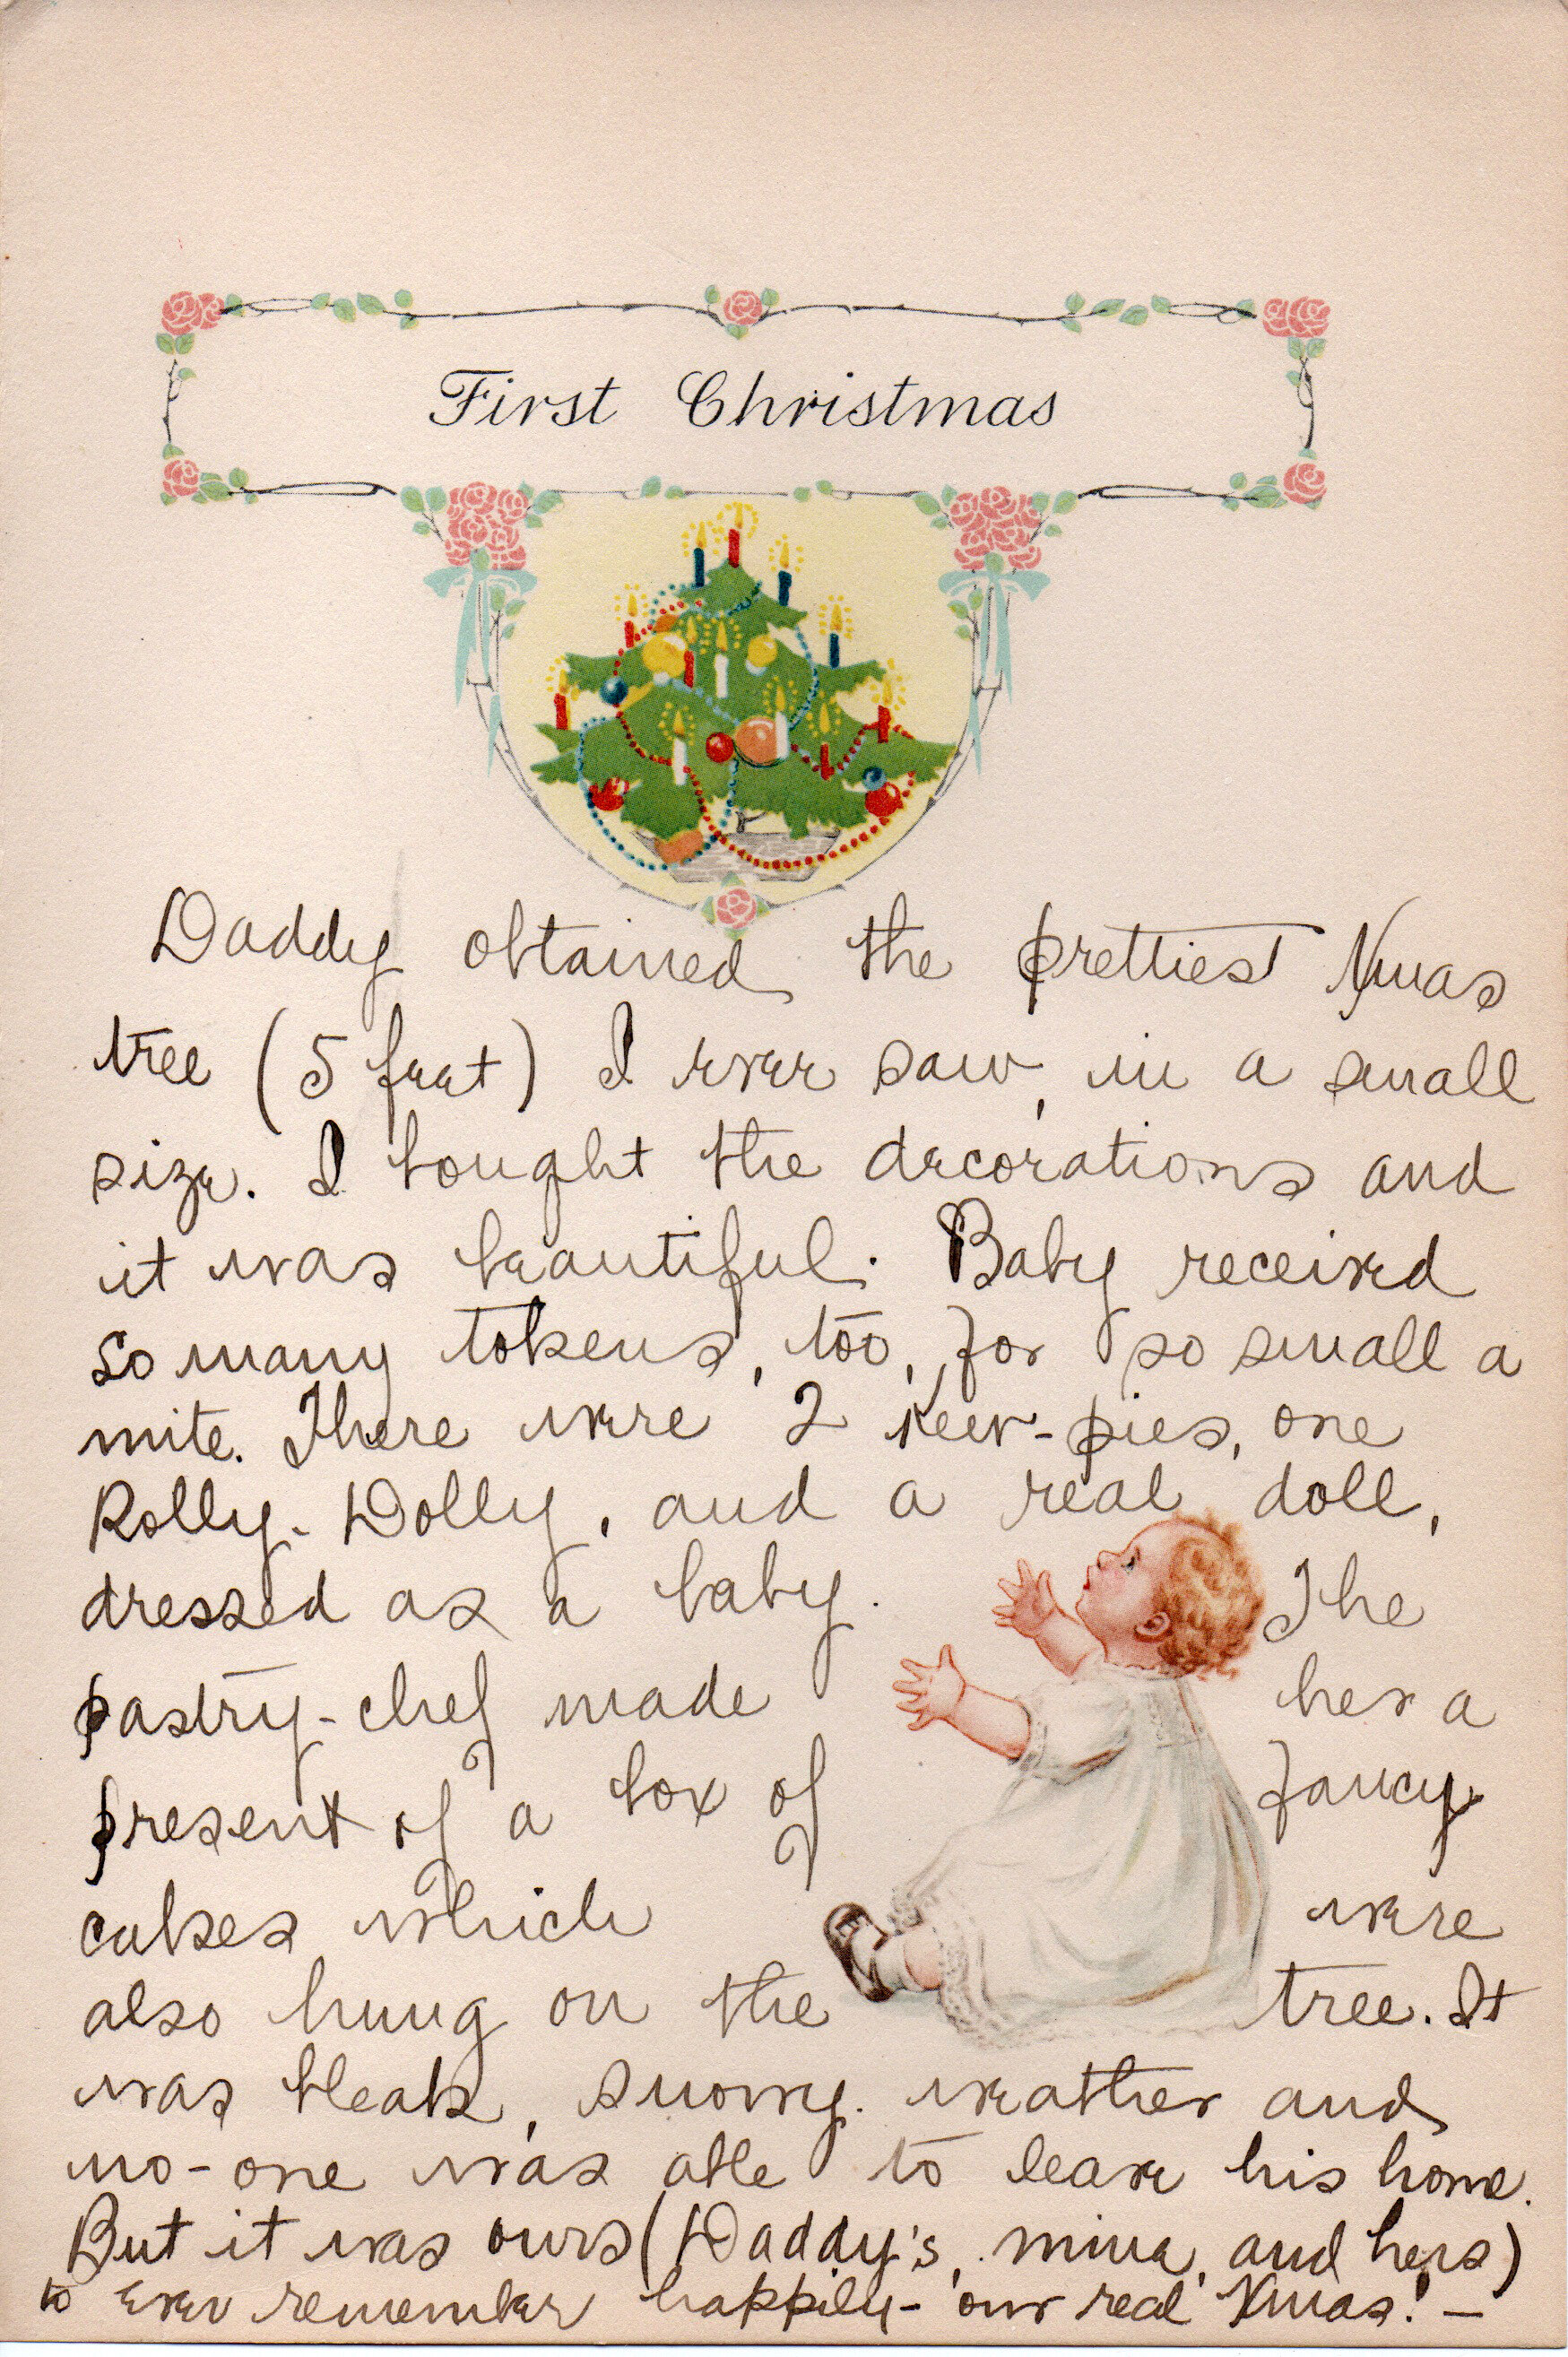 First Christmas
Daddy obtained the prettiest Xmas
tree (5 feet) I ever saw, in a small
size. I bought the decorations and
it was beautiful. Baby received
so many tokens, too, for so small a
mite. There were 2 Kew-pies, one
Rolly-Dolly, and a real doll,
dressed as a baby. The
pastry-chef made her a
present of a box of fancy
cakes which were
also hung on the tree. It
was bleak, snowy weather and
no-one was able to leave his home.
But it was ours (Daddy's, mine, and hers)
to ever remember happily - our real Xmas! -